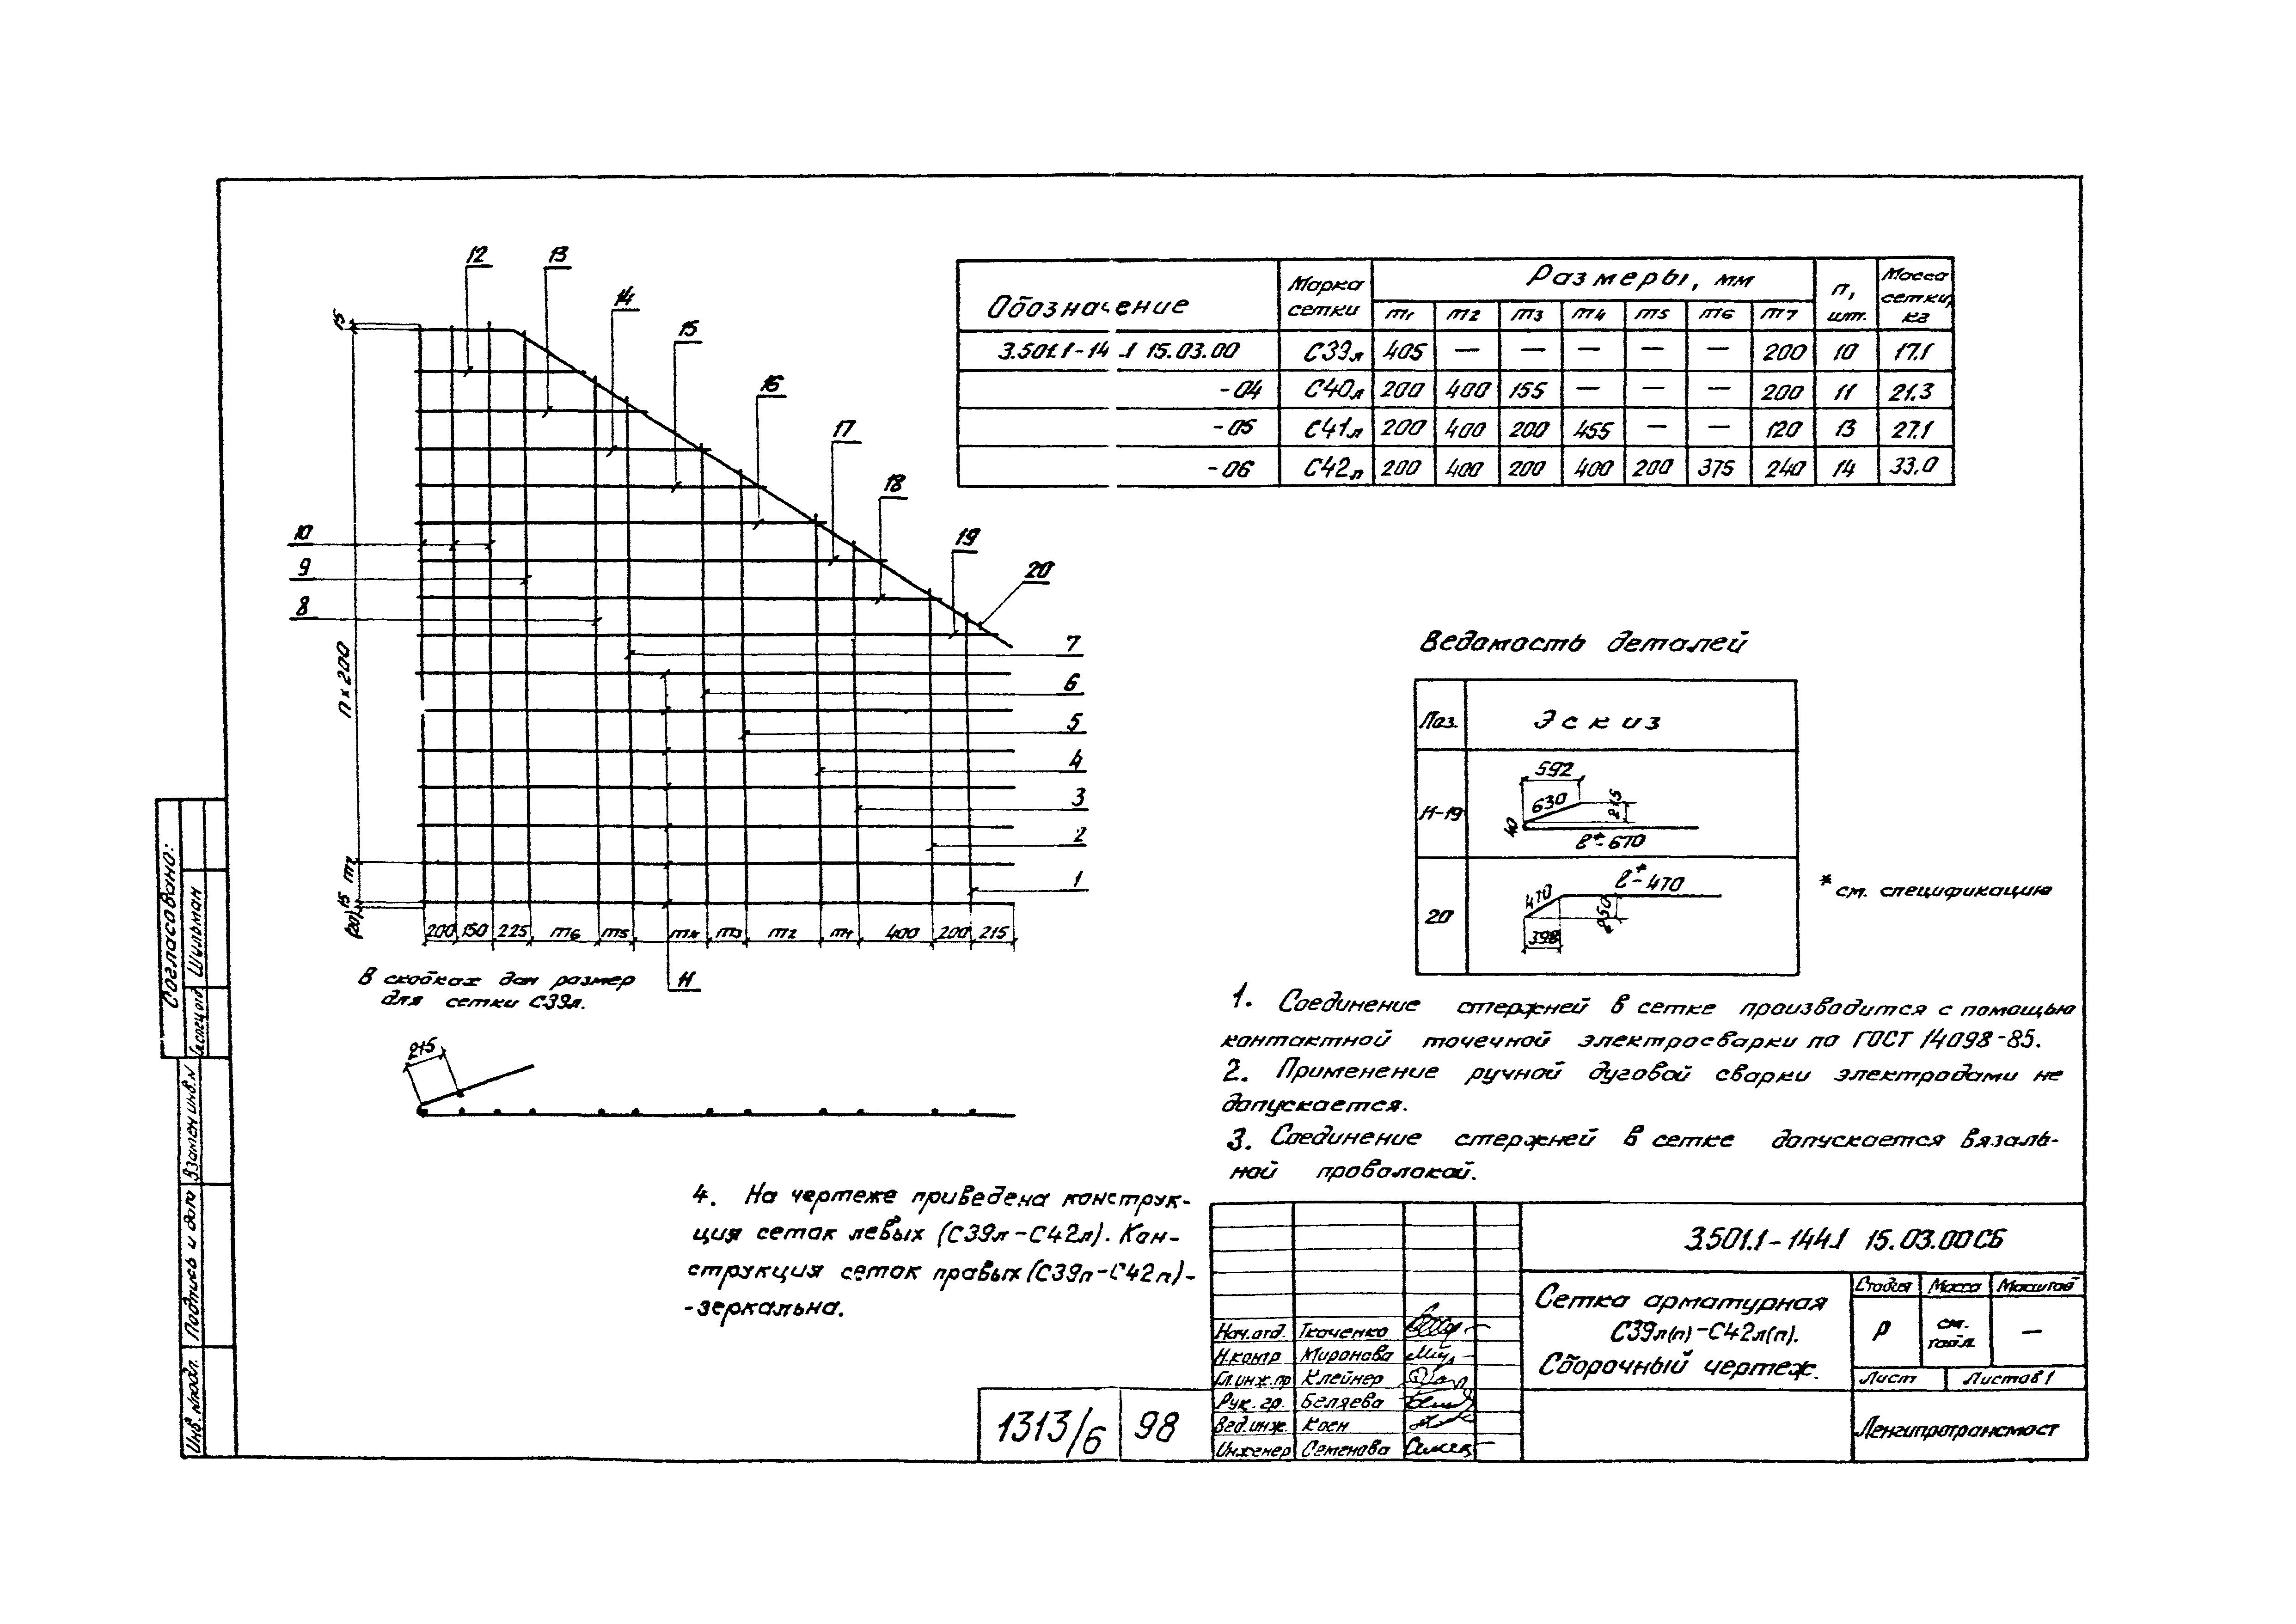 12
13
14
15
16
17
18
19
20
10
9
8
7
6
5
4
3
2
1
11
15
n x 200
m7
15
(20)
200 150 225 m6 m5 m4 m3 m2 m1 400 200 215
В скобках дан размер
для сетки С39л.
215
Обозначение Марка сетки Размеры, мм n, шт. Масса сетки, кг
m1 m2 m3 m4 m5 m6 m7
3.501.1-14 .1 15.03.00 С39л 405 — — — — — 200 10 17.1
-04 С40л 200 400 155 — — — 200 11 21.3
-05 С41л 200 400 200 455 — — 120 13 27.1
-06 С42л 200 400 200 400 200 375 240 14 33.0
Ведомость деталей
Поз. Эскиз
11-19
592
630
215
40
ℓ*-670
20
ℓ*-470
470
250
398
* см. спецификацию
1. Соединение стержней в сетке производится с помощью
контактной точечной электросварки по ГОСТ 14098-85.
2. Применение ручной дуговой сварки электродами не
допускается.
3. Соединение стержней в сетке допускается вязаль-
ной проволокой.
4. На чертеже приведена конструк-
ция сеток левых (С39л-С42л). Кон-
струкция сеток правых (С39п-С42п)-
-зеркальна.
Согласовано:
Шильман
Взамен инв.N
Подпись и дата
Инв. N подл.
3.501.1-144.1 15.03.00СБ
Сетка арматурная
С39л(п)-С42л(п).
Сборочный чертеж.
Стадия Масса Масштаб
Р см. табл. —
Лист Листов 1
Ленгипротрансмост
Нач.отд. Ткаченко
Н.контр Миронова
Гл.инж.пр Клейнер
Рук. гр. Беляева
Вед.инж. Коен
Инженер Семенова
1313/6 98